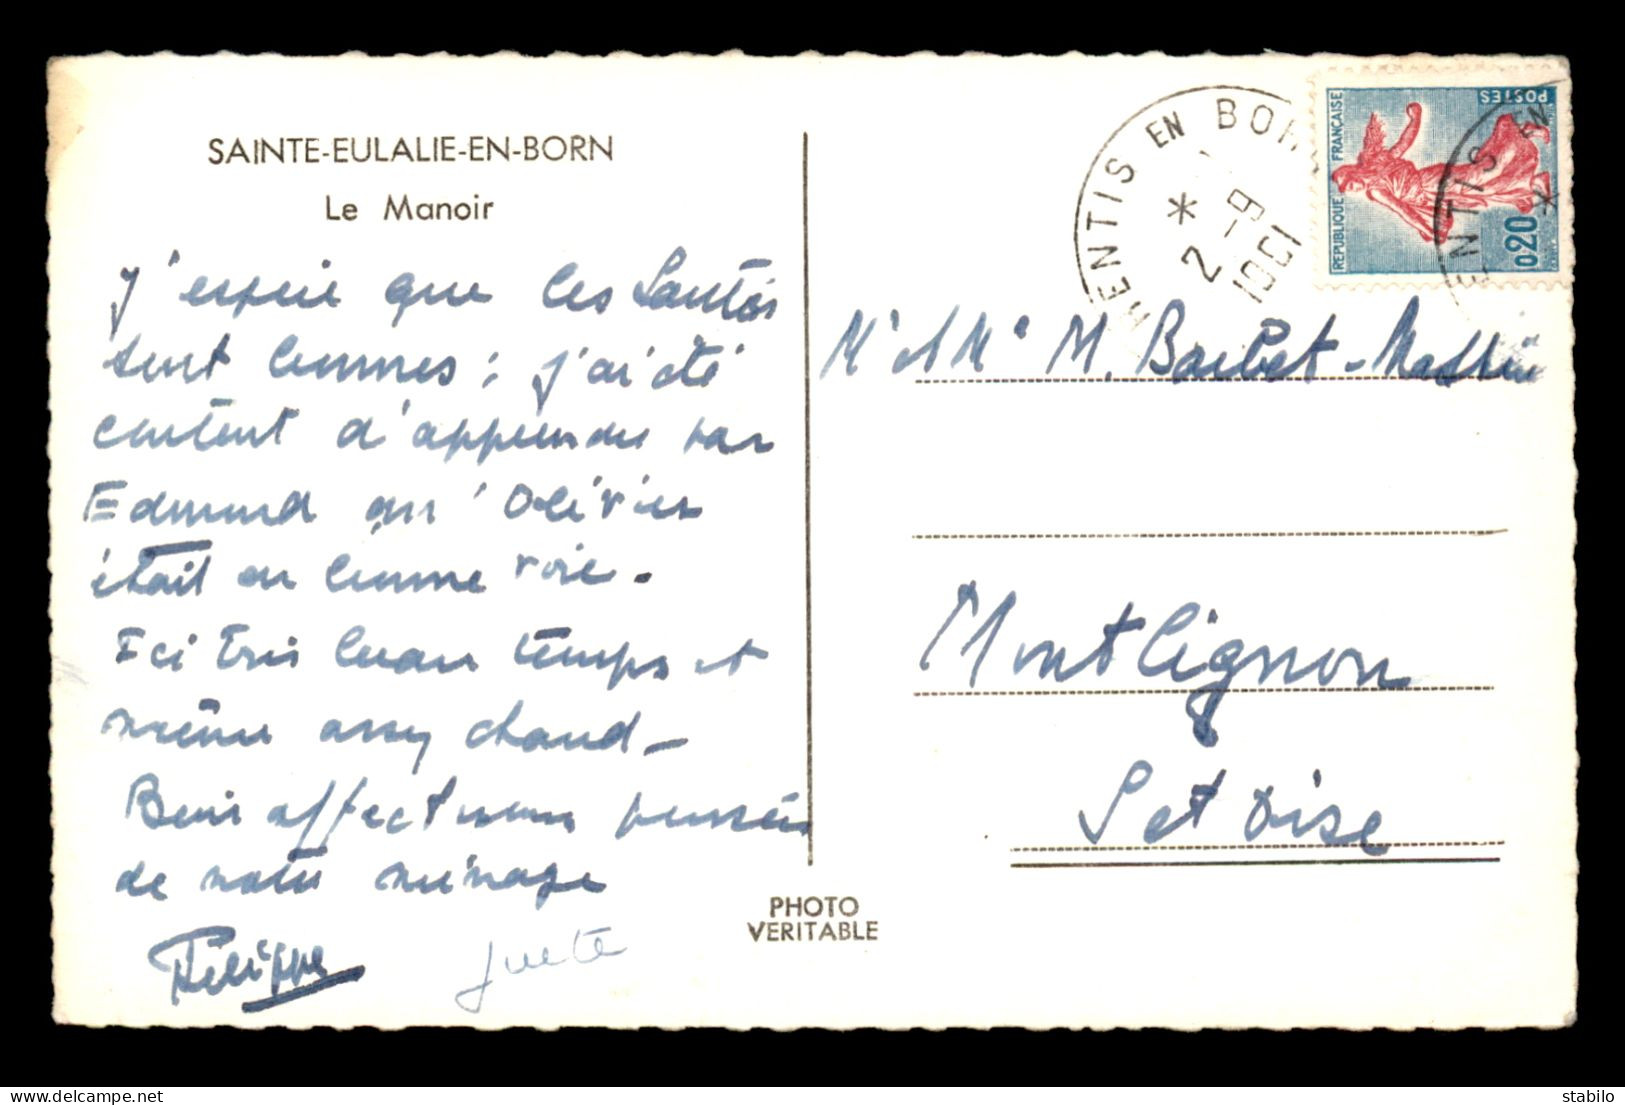 SAINTE-EULALIE-EN-BORN
Le Manoir
J'espère que les Santés
sont bonnes; j'ai été
content d'apprendre par
Edmond qu'Olivier
était en bonne voie.
Ici très beau temps et
même assez chaud –
Bien affectueuses pensées
de notre ménage
Philippe
PHOTO
VERITABLE
RENTIS EN BOR
* 2 -9
19
REPUBLIQUE FRANÇAISE
POSTES
0,20
ENTIS EN
*
Mr et Me M. Barbet-Massin
Montlignon
Set Oise
delcampe.net
stabilo